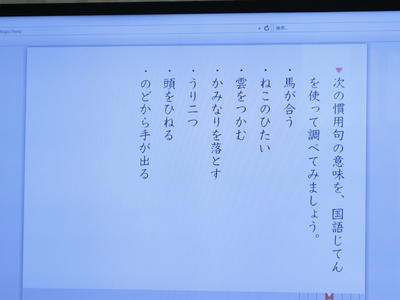 ▼次の慣用句の意味を、国語じてん
を使って調べてみましょう。
・馬が合う
・ねこのひたい
・雲をつかむ
・かみなりを落とす
・うり二つ
・頭をひねる
・のどから手が出る